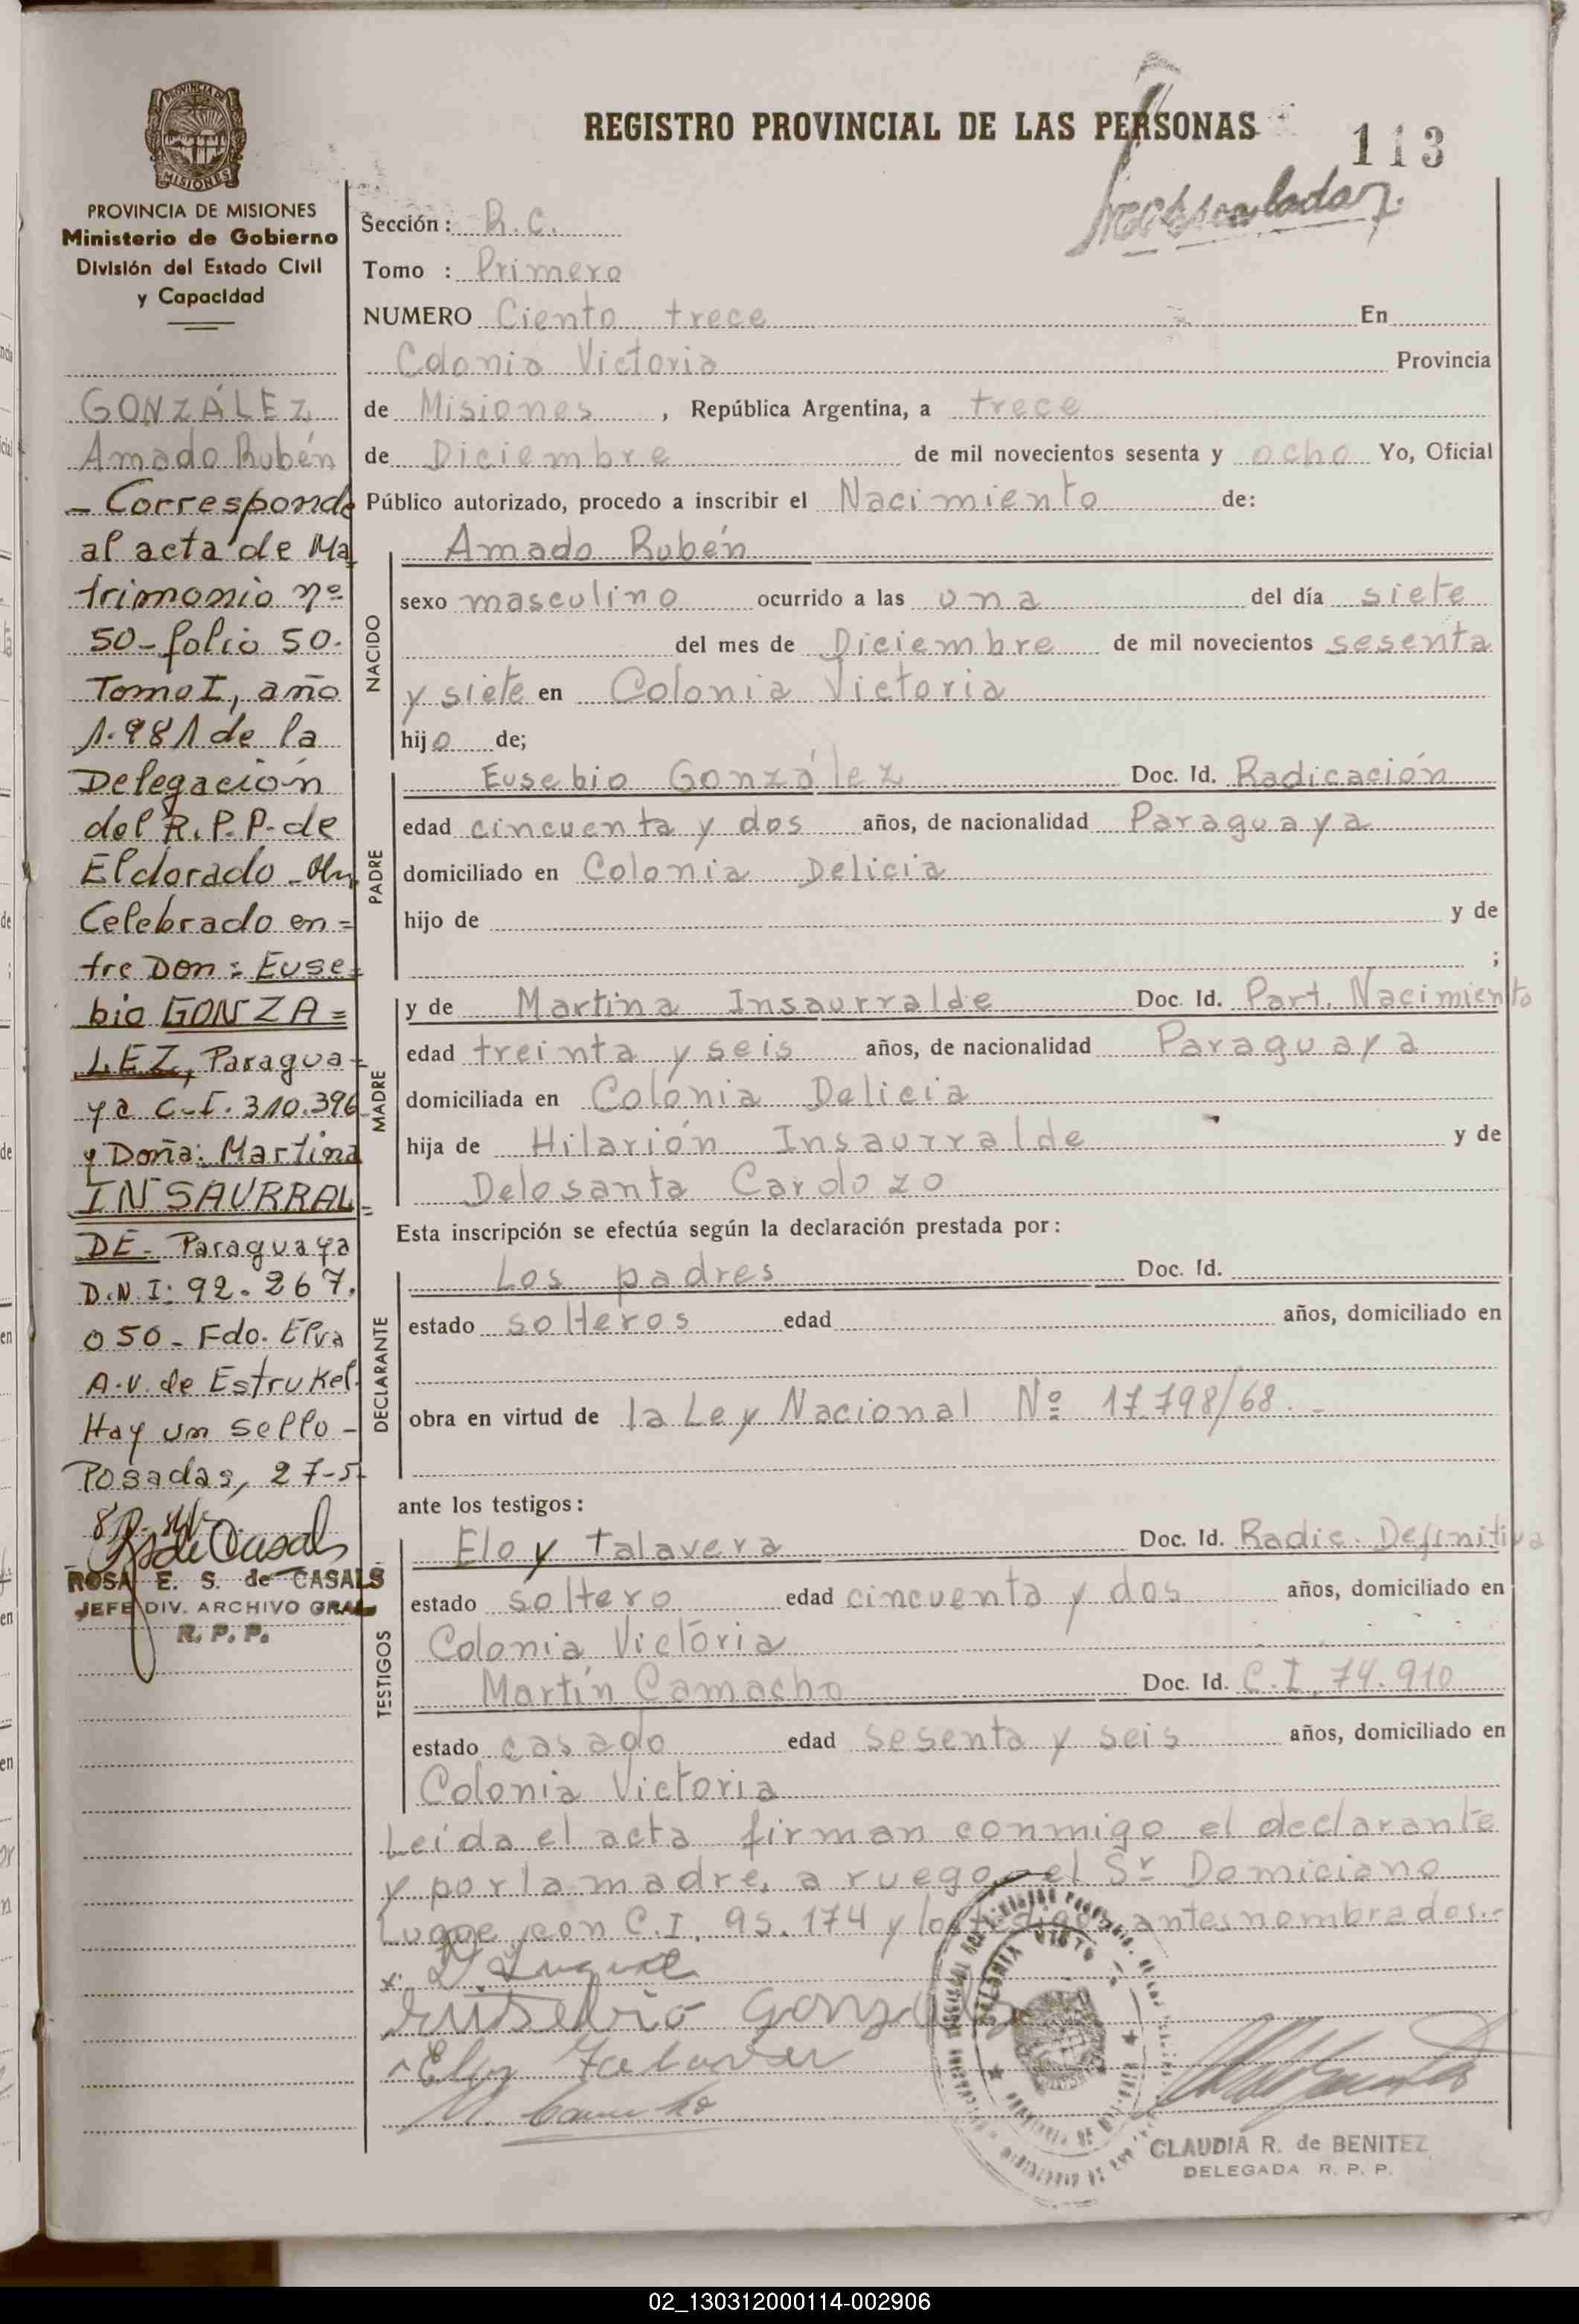 REGISTRO PROVINCIAL DE LAS PERSONAS
113
PROVINCIA DE
MISIONES
PROVINCIA DE MISIONES
Ministerio de Gobierno
División del Estado Civil
y Capacidad
GONZÁLEZ
Amado Rubén
- Corresponde
al acta de Ma
trimonio nº
50 - folio 50.
Tomo I, año
1.981 de la
Delegación
del R.P.P. de
Eldorado -
Celebrado en=
tre Don: Euse=
bio GONZA=
LEZ, Paragua=
ya C.I. 310.396
y Doña: Martina
INSAURRAL=
DE - Paraguaya
D.N.I: 92.267.
050 - Fdo. Elva
A.V. de Estrukel.
Hay un sello -
Posadas, 27-5-
ROSA E. S. de CASALS
JEFE DIV. ARCHIVO GRAL
R. P. P.
Sección: R.C.
Tomo : Primero
NUMERO Ciento trece En
Colonia Victoria Provincia
de Misiones, República Argentina, a trece
de Diciembre de mil novecientos sesenta y ocho Yo, Oficial
Público autorizado, procedo a inscribir el Nacimiento de:
NACIDO
Amado Rubén
sexo masculino ocurrido a las una del día siete
del mes de Diciembre de mil novecientos sesenta
y siete en Colonia Victoria
hijo de;
PADRE
Eusebio González Doc. Id. Radicación
edad cincuenta y dos años, de nacionalidad Paraguaya
domiciliado en Colonia Delicia
hijo de y de
;
MADRE
y de Martina Insaurralde Doc. Id. Part. Nacimiento
edad treinta y seis años, de nacionalidad Paraguaya
domiciliada en Colonia Delicia
hija de Hilarión Insaurralde y de
Delosanta Cardozo
Esta inscripción se efectúa según la declaración prestada por:
DECLARANTE
Los padres Doc. Id.
estado solteros edad años, domiciliado en
obra en virtud de la Ley Nacional Nº 17.798/68. -
ante los testigos:
TESTIGOS
Eloy Talavera Doc. Id. Radic. Definitiva
estado soltero edad cincuenta y dos años, domiciliado en
Colonia Victoria
Martín Camacho Doc. Id. C.I. 74.910
estado casado edad sesenta y seis años, domiciliado en
Colonia Victoria
Leída el acta firman conmigo el declarante
y por la madre, a ruego el Sr Domiciano
Luque con C.I. 95.174 y los testigos antes nombrados.-
D. Luque
Eusebio Gonzales
Eloy Talavera
M. Camacho
CLAUDIA R. de BENITEZ
DELEGADA R. P. P.
02_130312000114-002906